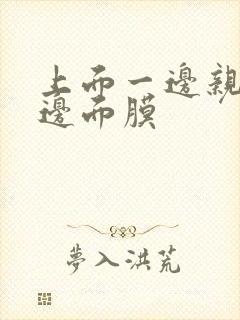 上而一邊親
邊而膜
夢入洪荒